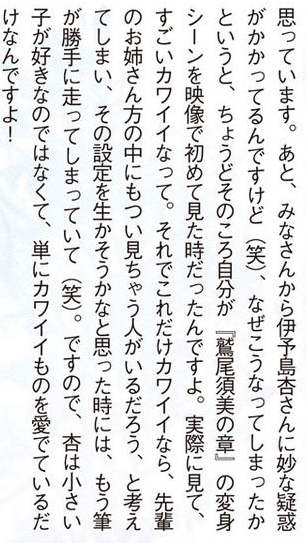 思っています。あと、みなさんから伊予島杏さんに妙な疑惑
がかかってるんですけど（笑）、なぜこうなってしまったか
というと、ちょうどそのころ自分が『鷲尾須美の章』の変身
シーンを映像で初めて見た時だったんですよ。実際に見て、
すごいカワイイなって。それでこれだけカワイイなら、先輩
のお姉さん方の中にもつい見ちゃう人がいるだろう、と考え
てしまい、その設定を生かそうかなと思った時には、もう筆
が勝手に走ってしまっていて（笑）。ですので、杏は小さい
子が好きなのではなくて、単にカワイイものを愛でているだ
けなんですよ！